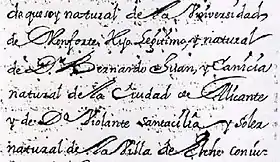 de quese y natural de la Universidad
de Monforte, Hijo Legitimo, y natural
de Dn Bernardo Juan, y Canicia
natural de la Ciudad de Alicante
y de Da Violante Santacilia y Soler
natural de la Villa de Elche coniu